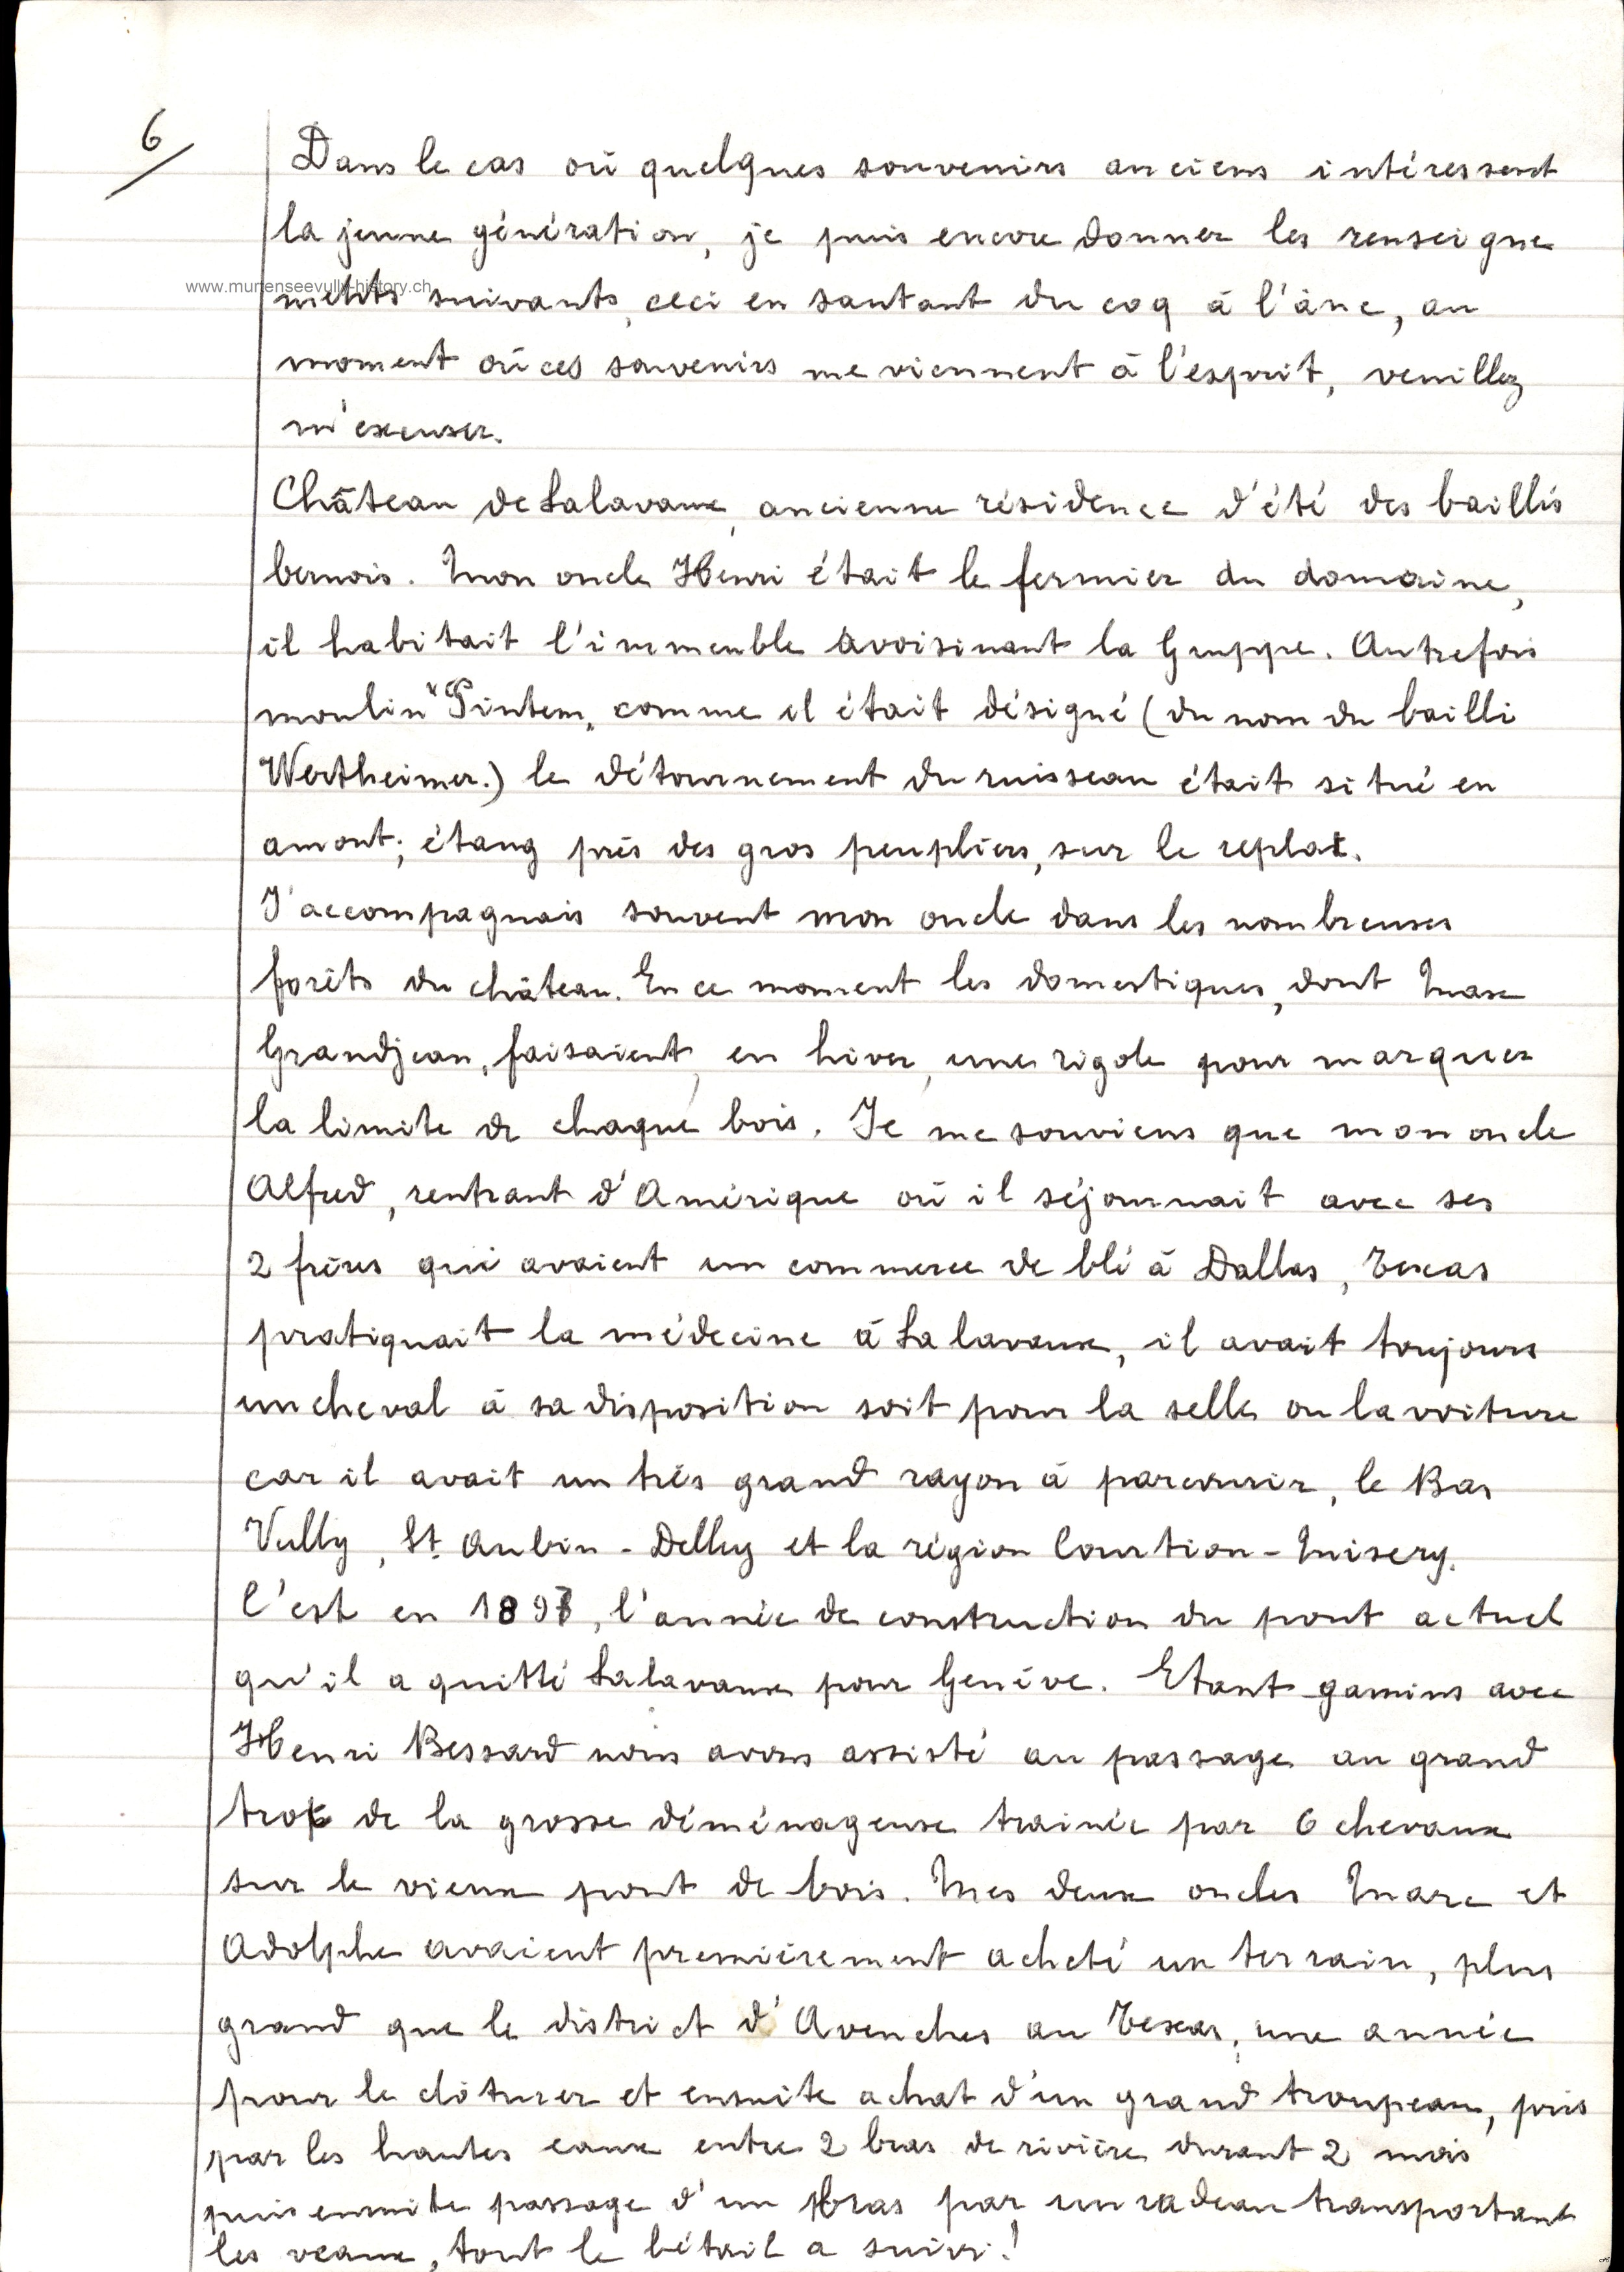 6/
Dans le cas où quelques souvenirs anciens intéressent
la jeune génération, je puis encore donner les renseigne
www.murtenseevully-history.ch
ments suivants, ceci en sautant du coq à l'âne, au
moment où ces souvenirs me viennent à l'esprit, veuillez
m'excuser.
Château de Salavaux, ancienne résidence d'été des baillis
bernois. Mon oncle Henri était le fermier du domaine,
il habitait l'immeuble avoisinant la Gruppe. Autrefois
moulin "Pintem" comme il était désigné (du nom du bailli
Wertheimer.) le détournement du ruisseau était situé en
amont; étang près des gros peupliers, sur le replat.
J'accompagnais souvent mon oncle dans les nombreuses
forêts du château. En ce moment les domestiques, dont Max
Grandjean, faisaient, en hiver, une rigole pour marquer
la limite de chaque bois. Je me souviens que mon oncle
Alfred, rentrant d'Amérique où il séjournait avec ses
2 frères qui avaient un commerce de blé à Dallas, Texas
pratiquait la médecine à Salavaux, il avait toujours
un cheval à sa disposition soit pour la selle ou la voiture
car il avait un très grand rayon à parcourir, le Bas
Vully, St. Aubin - Delley et la région Courtion - Misery.
C'est en 1897, l'année de construction du pont actuel
qu'il a quitté Salavaux pour Genève. Etant gamins avec
Henri Bessard nous avons assisté au passage au grand
trot de la grosse déménageuse trainée par 6 chevaux
sur le vieux pont de bois. Mes deux oncles Marc et
Adolphe avaient premièrement acheté un terrain, plus
grand que le district d'Avenches au Texas, une année
pour le clôturer et ensuite achat d'un grand troupeau, pris
par les hautes eaux entre 2 bras de rivière durant 2 mois
puis ensuite passage d'un bras par un radeau transportant
les veaux, tout le bétail a suivi!